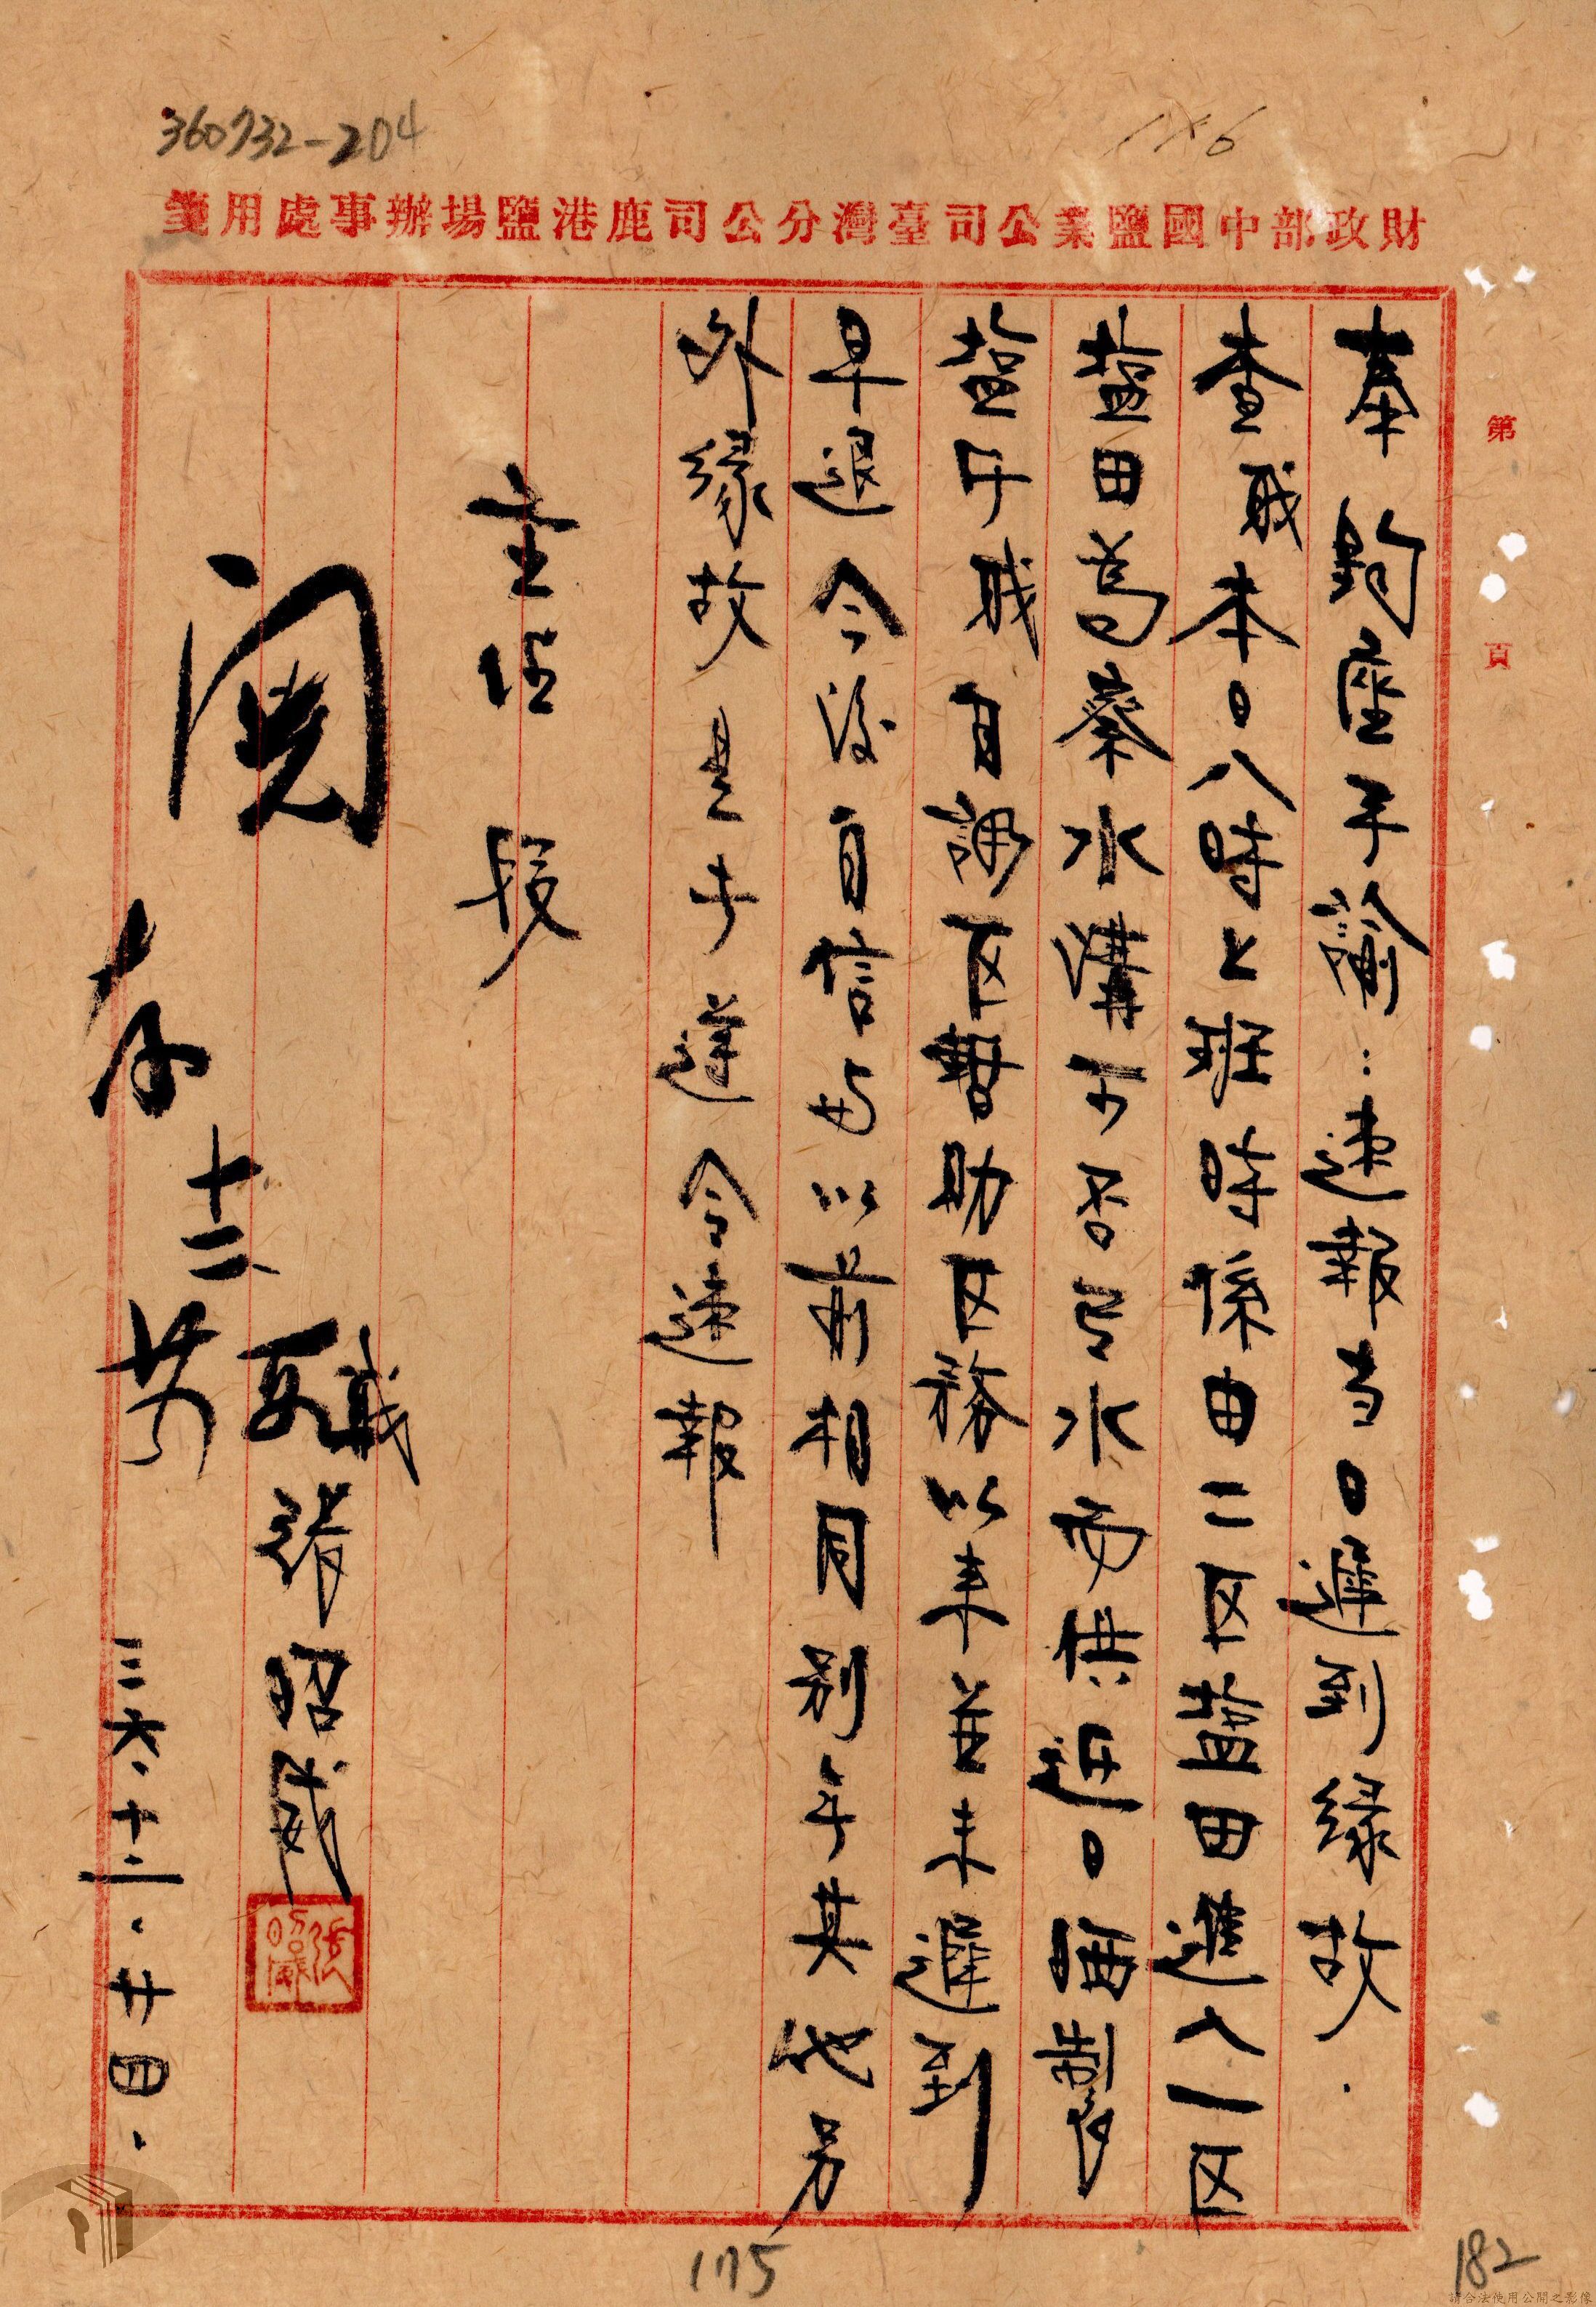 360732-204
1×6
財政部中國鹽業公司臺灣分公司鹿港鹽場辦事處用箋
第 頁
奉 鈞座手諭：速報当日遲到緣故．
查職本日八時上班時係由二区盐田進入一区
盐田為察水溝可否引水而供近日晒製
盐乎職自調区暫助区務以来並未遲到
早退今後自信与以前相同別無其他另
外緣故 是乎遵令速報
主任 段
閱
存
十二
廿
職 張昭威
三六．十二．廿四．
175
182
請合法使用公開之影像